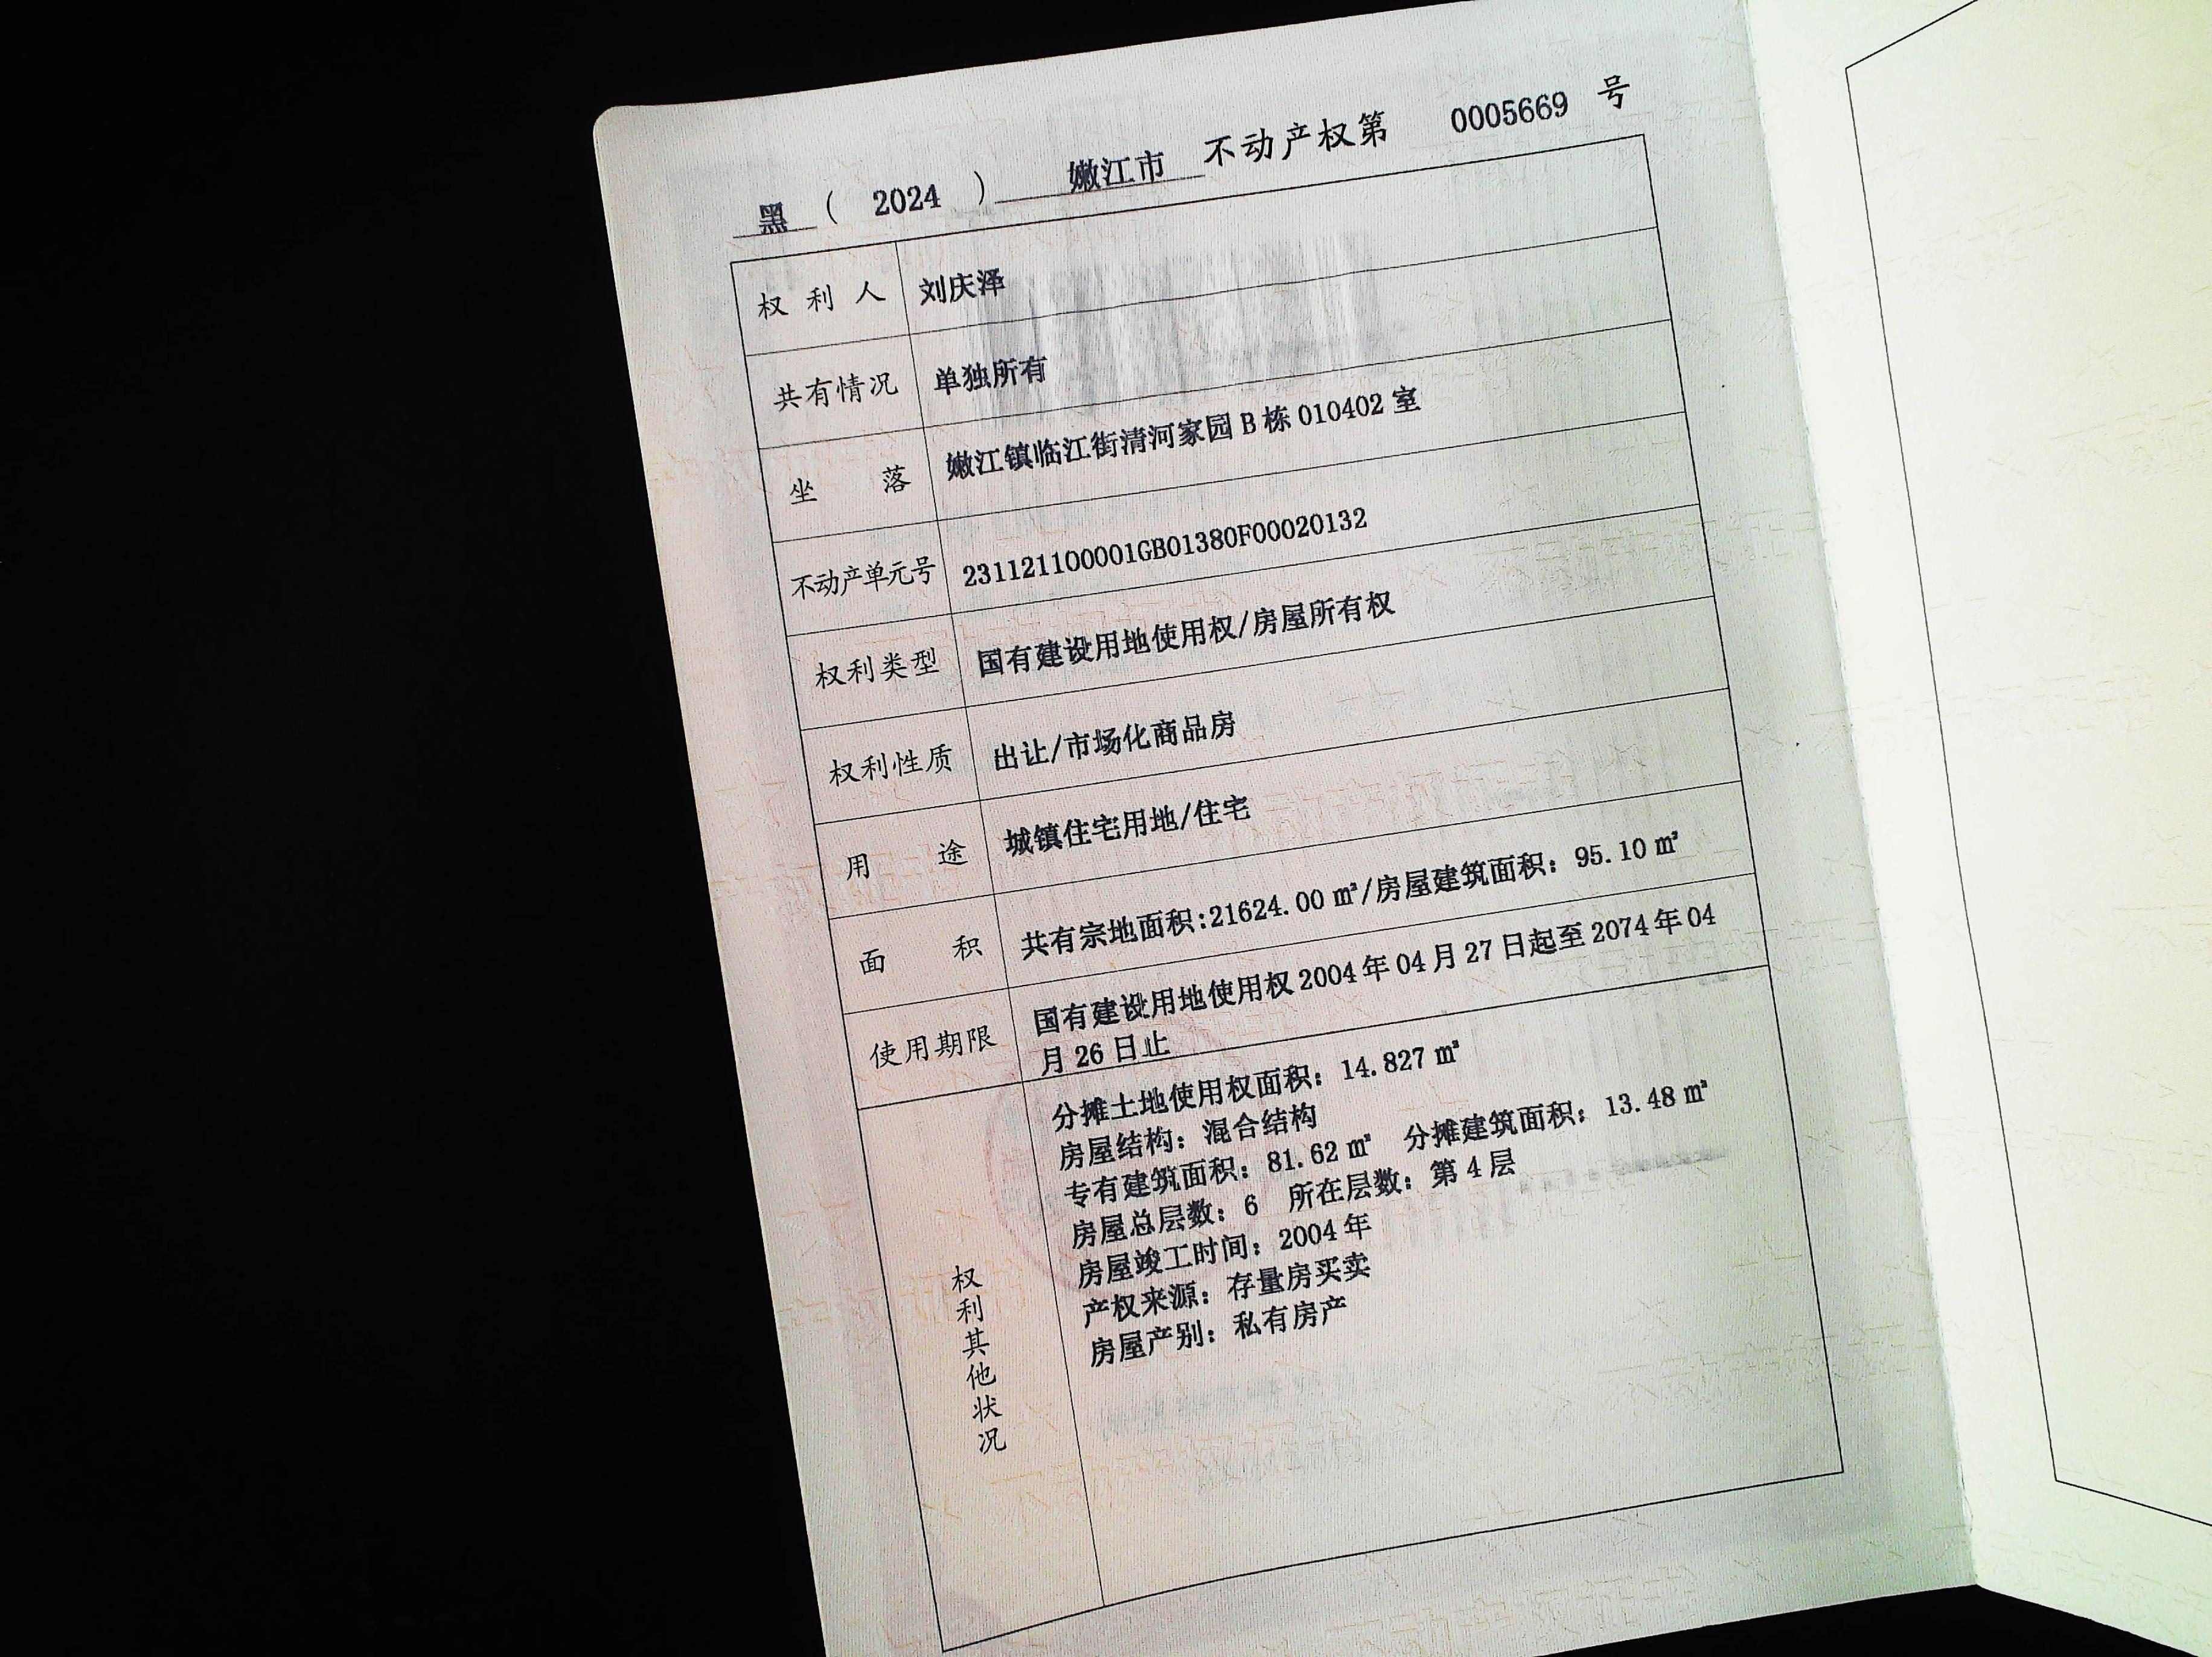 黑 ( 2024 ) 嫩江市 不动产权第 0005669 号
权利人 刘庆泽
共有情况 单独所有
坐落 嫩江镇临江街清河家园 B 栋 010402 室
不动产单元号 231121100001GB01380F00020132
权利类型 国有建设用地使用权/房屋所有权
权利性质 出让/市场化商品房
用途 城镇住宅用地/住宅
面积 共有宗地面积:21624.00 ㎡/房屋建筑面积：95.10 ㎡
使用期限 国有建设用地使用权 2004 年 04 月 27 日起至 2074 年 04
月 26 日止
权利其他状况
分摊土地使用权面积：14.827 ㎡
房屋结构：混合结构
专有建筑面积：81.62 ㎡ 分摊建筑面积：13.48 ㎡
房屋总层数：6 所在层数：第 4 层
房屋竣工时间：2004 年
产权来源：存量房买卖
房屋产别：私有房产